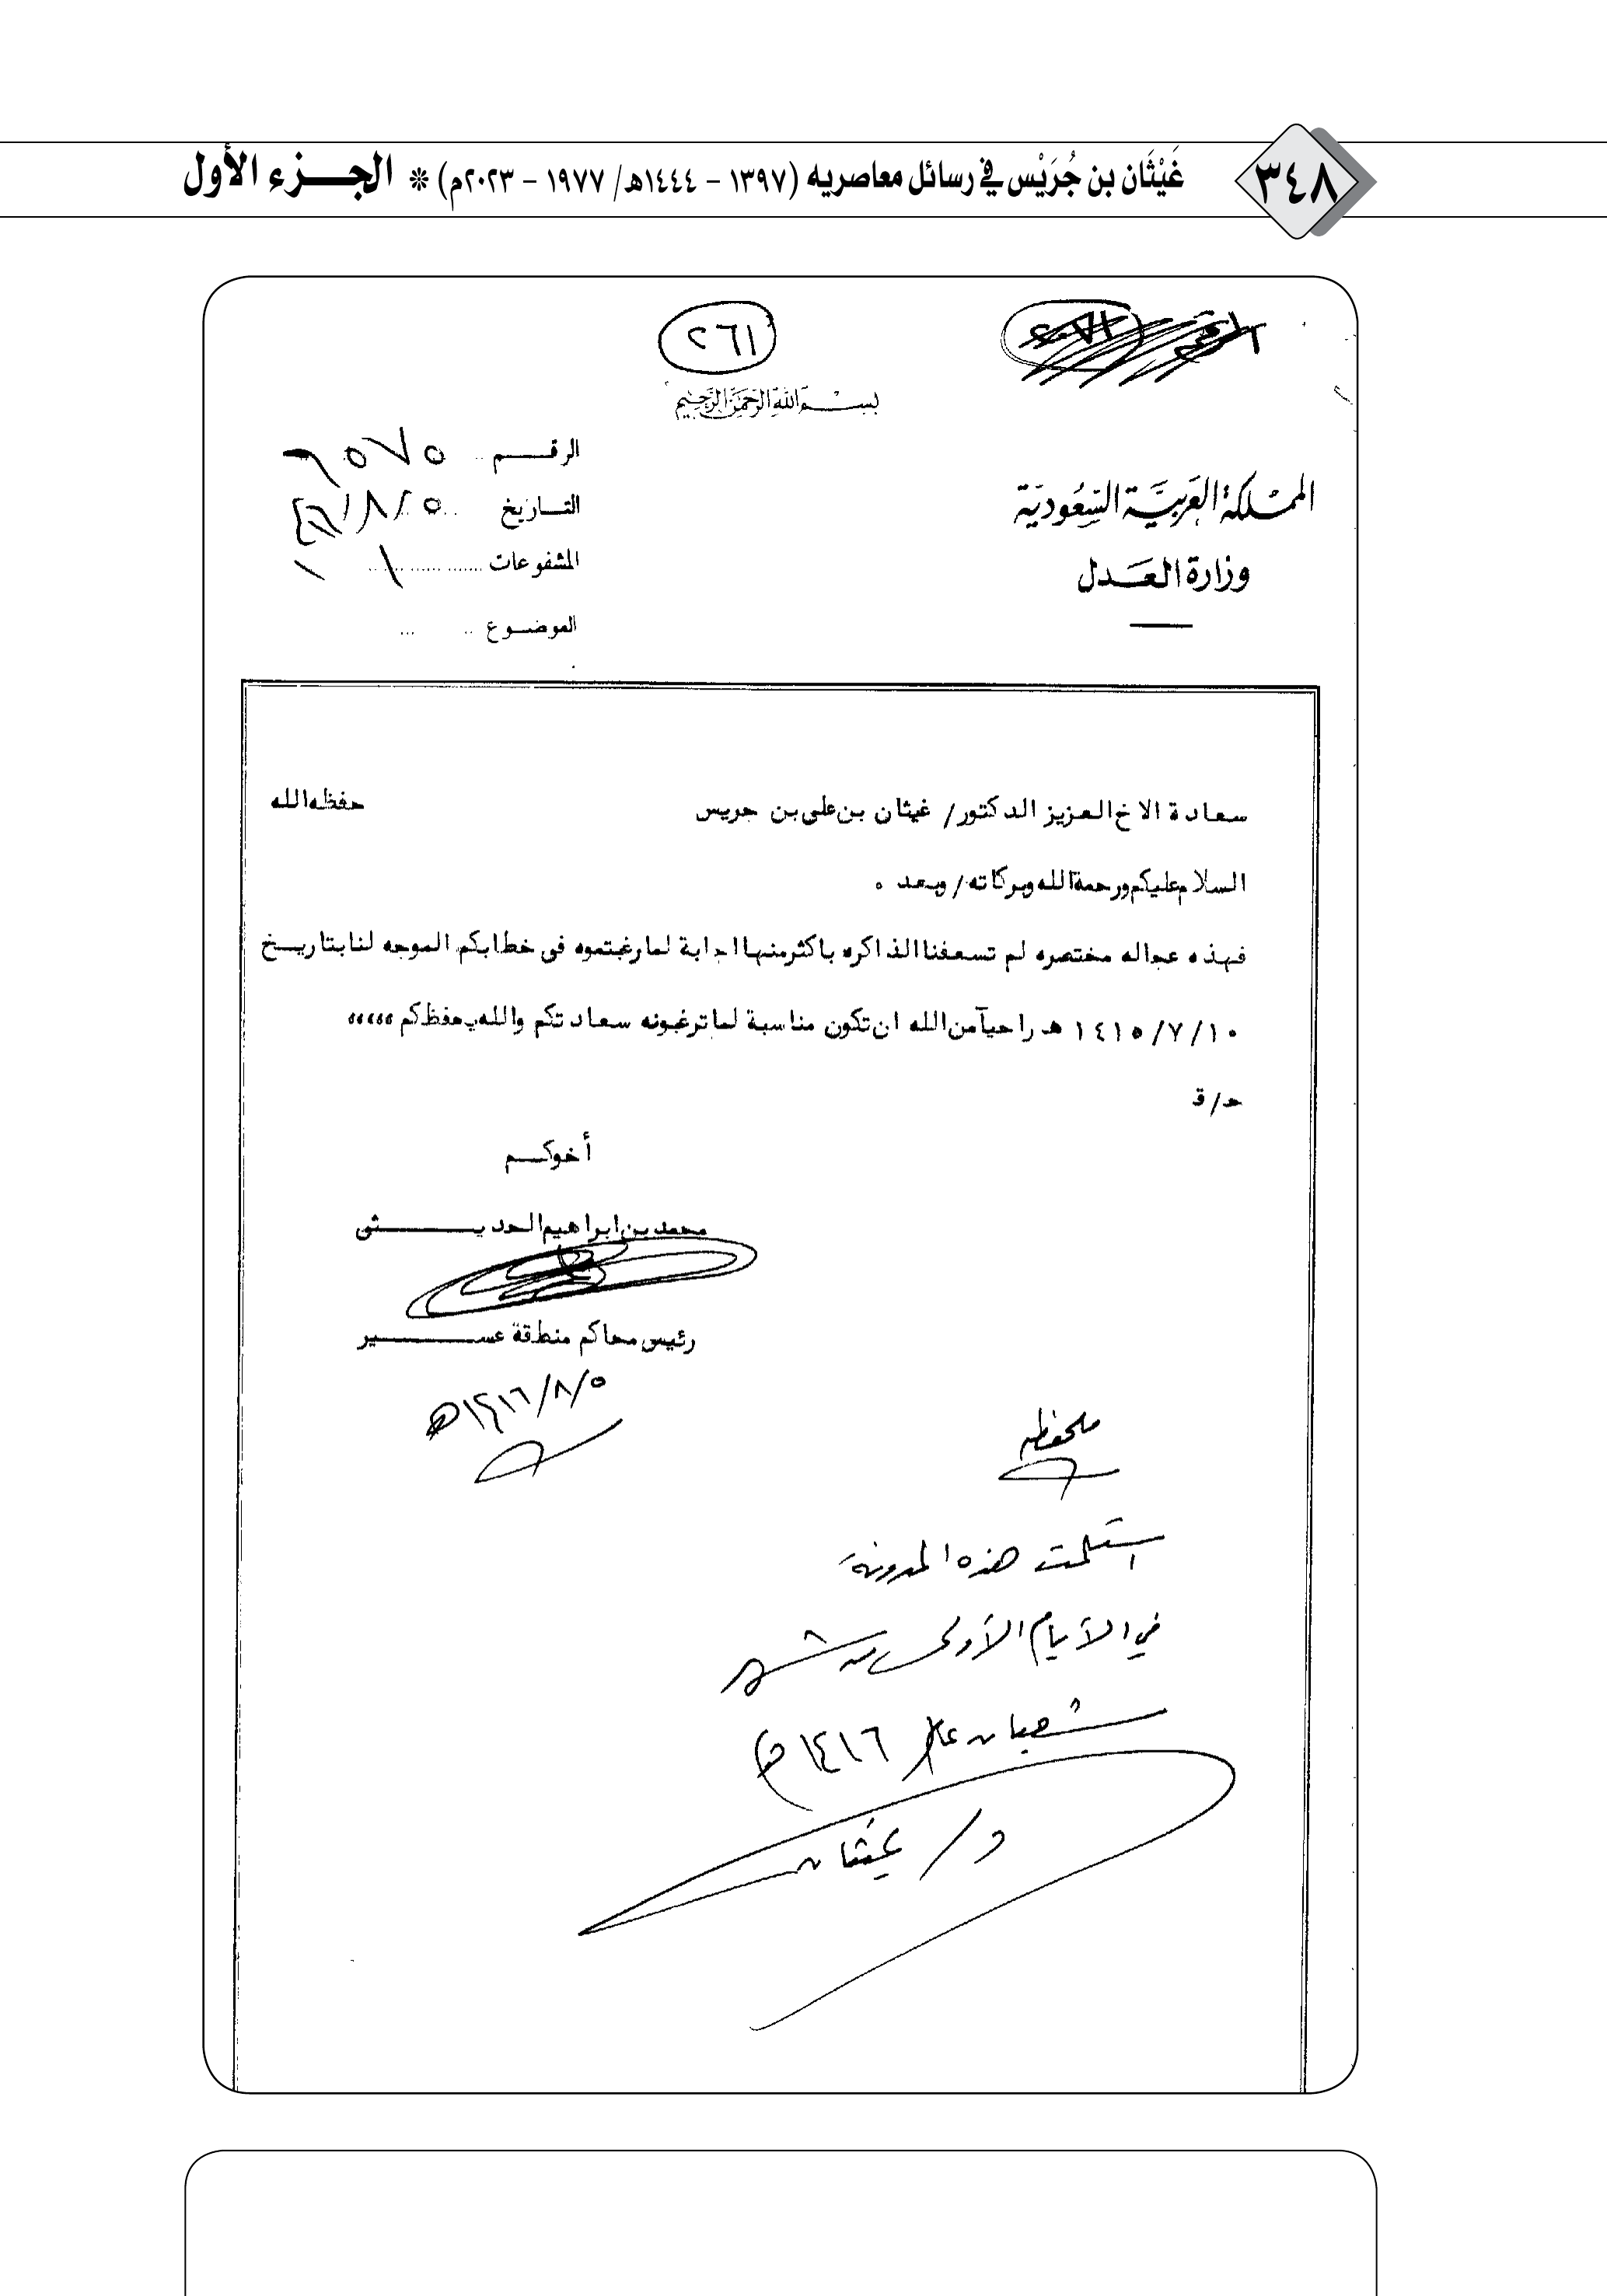 ٣٤٨
غَيْثَان بن جُرَيْس في رسائل معاصريه (١٣٩٧ – ١٤٤٤هـ/ ١٩٧٧ – ٢٠٢٣م) * الجـزء الأول
٢٦١
بسم الله الرحمن الرحيم
المملكة العربية السعودية
وزارة العدل
الرقم
التاريخ ٥/٨/
المشفوعات
الموضوع
سعادة الاخ العزيز الدكتور/ غيثان بن على بن جريس حفظه الله
السلام عليكم ورحمة الله وبركاته/ وبعد ٠
فهذه عجاله مختصره لم تسعفنا الذاكره باكثر منها اجابة لما رغبتموه فى خطابكم الموجه لنا بتاريخ
١٤١٥/٧/١٠ هـ راجيآ من الله ان تكون مناسبة لما ترغبونه سعادتكم والله يحفظكم ،،،،،
ح/ق
أخوكم
محمد بن ابراهيم الحديثى
رئيس محاكم منطقة عسير
٥/٨/١٤١٦هـ
ملحوظه
استلمت هذه المدونة
في الأيام الأولى من شهر
شعبان عام ١٤١٦هـ
د/ غيثان